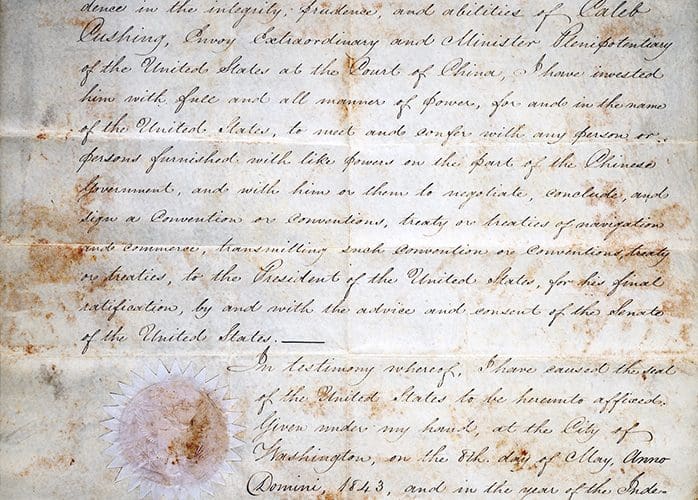 dence in the integrity, prudence, and abilities of Caleb
Cushing, Envoy Extraordinary and Minister Plenipotentiary
of the United States at the Court of China, I have invested
him with full and all manner of power, for and in the name
of the United States, to meet and confer with any person or
persons furnished with like powers on the part of the Chinese
Government, and with him or them to negotiate, conclude, and
sign a Convention or Conventions, treaty or treaties of navigation
and commerce, transmitting such convention or conventions, treaty
or treaties, to the President of the United States, for his final
ratification, by and with the advice and consent of the Senate
of the United States.
In testimony whereof, I have caused the seal
of the United States to be hereunto affixed.
Given under my hand, at the City of
Washington, on the 8th. day of May, Anno
Domini, 1843, and in the year of the Inde-